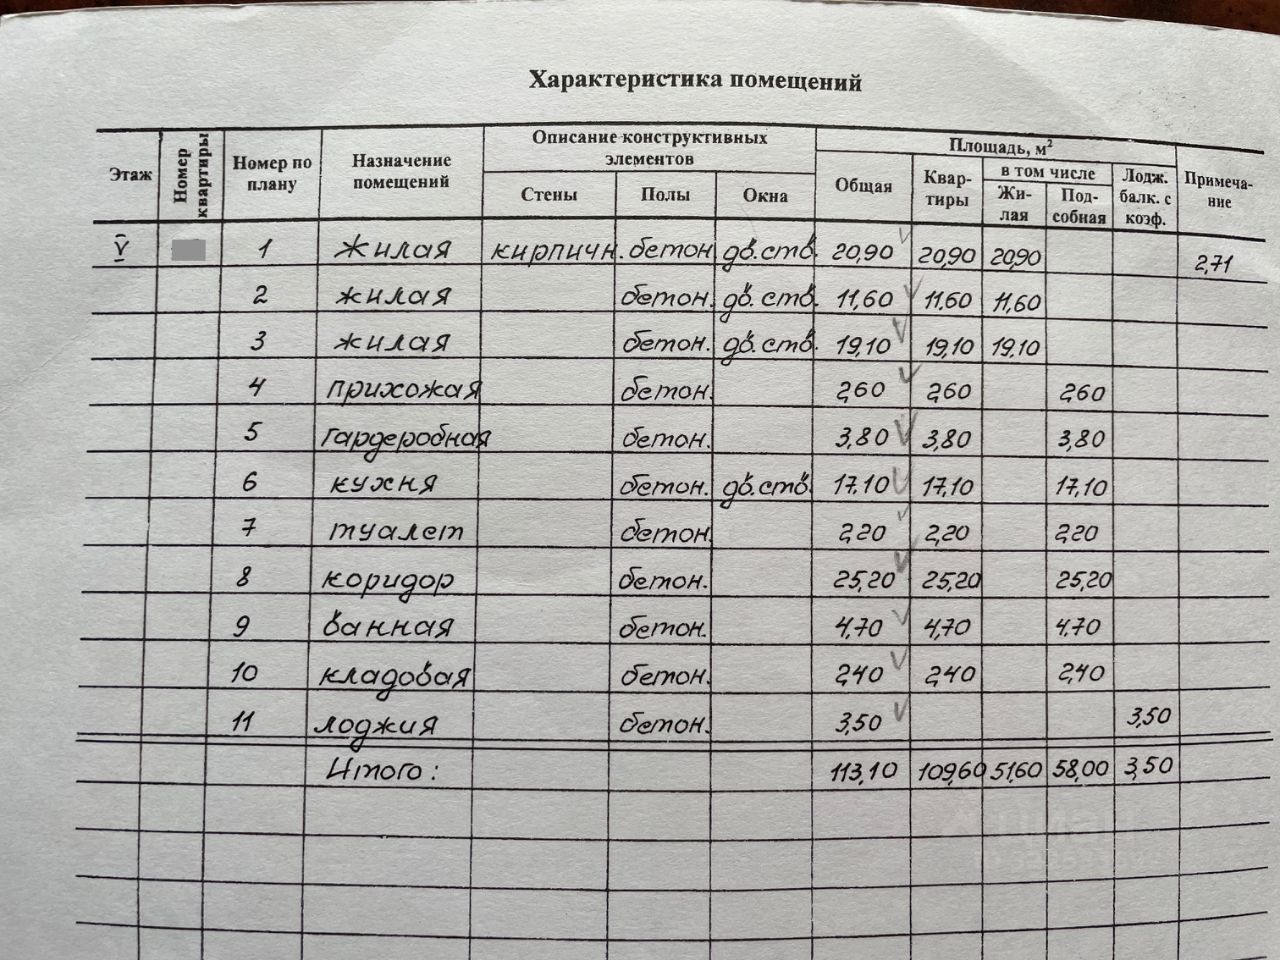 Характеристика помещений
Этаж Номер квартиры Номер по плану Назначение помещений Описание конструктивных элементов Площадь, м² Примеча-ние
Стены Полы Окна Общая Квар-тиры в том числе Лодж. балк. с коэф.
Жи-лая Под-собная
V 1 жилая кирпичн. бетон дв. ств. 20,90 20,90 20,90 2,71
2 жилая бетон. дв. ств. 11,60 11,60 11,60
3 жилая бетон. дв. ств. 19,10 19,10 19,10
4 прихожая бетон. 2,60 2,60 2,60
5 гардеробная бетон. 3,80 3,80 3,80
6 кухня бетон. дв. ств. 17,10 17,10 17,10
7 туалет бетон. 2,20 2,20 2,20
8 коридор бетон. 25,20 25,20 25,20
9 ванная бетон. 4,70 4,70 4,70
10 кладовая бетон. 2,40 2,40 2,40
11 лоджия бетон. 3,50 3,50
Итого: 113,10 109,60 51,60 58,00 3,50